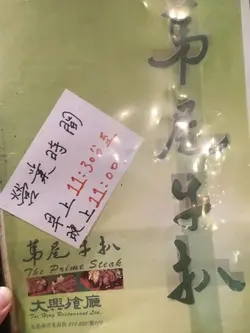 第尼牛扒
營業時間
早上11:30分至
晚上11:00
第尼牛扒
The Prime Steak
大興飧廳
Tai Hing Restaurant Ltd.